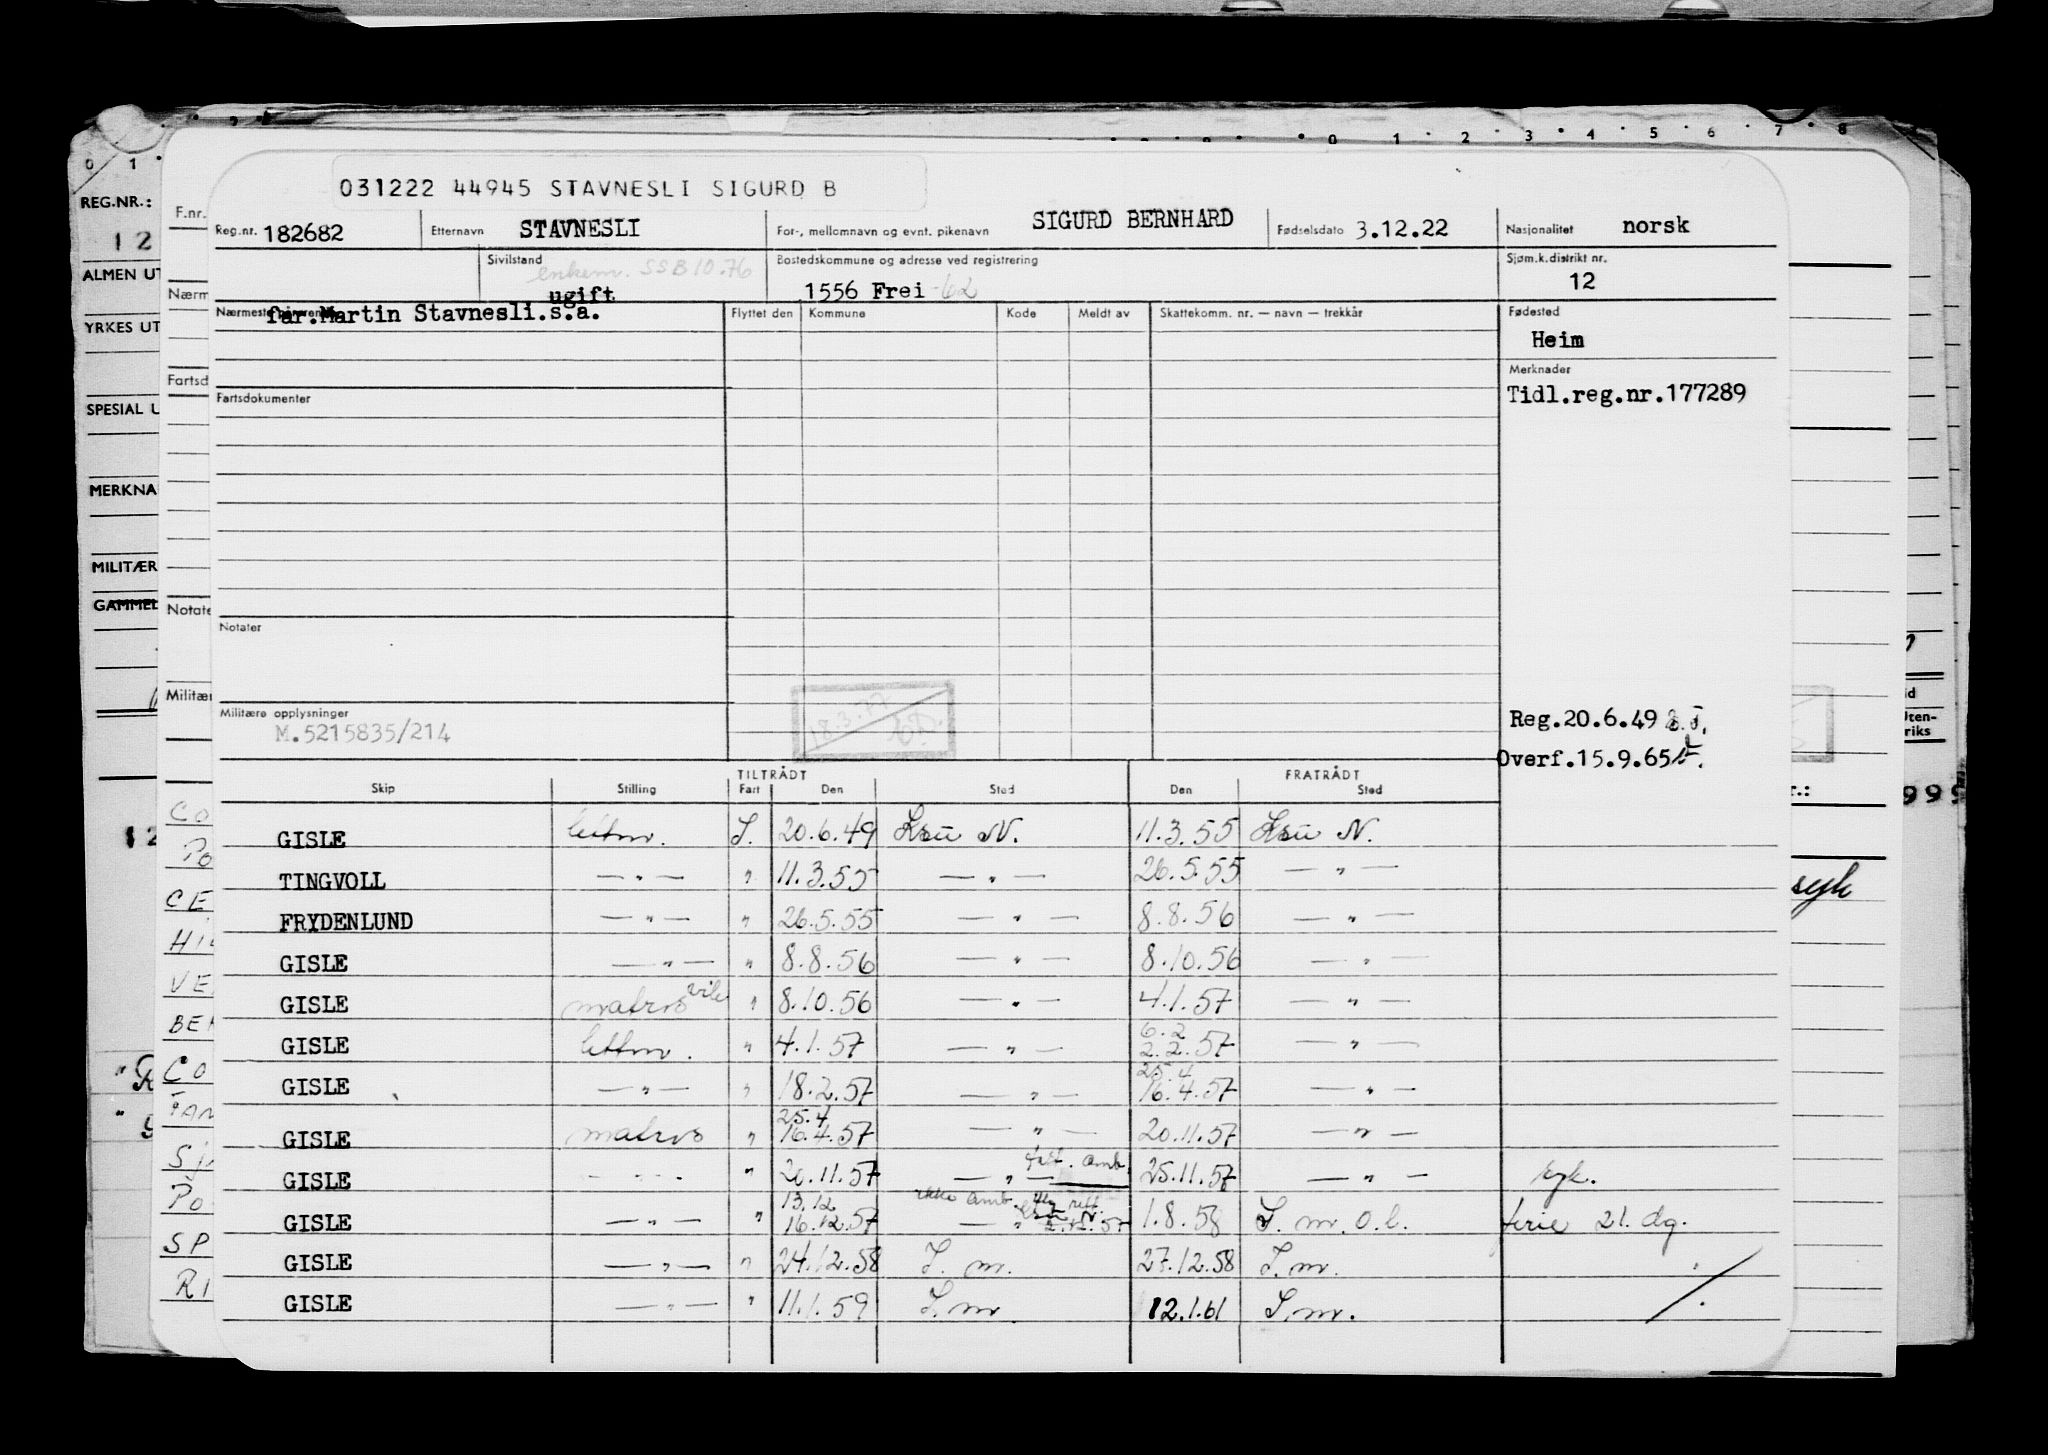 0 1 . . . 0 1 2 3 4 5 6 7 8
REG.NR.:
12
ALMEN UT
YRKES UT
SPESIAL U
MERKNA
MILITÆR
GAMMEL
F.nr.
Nærm
Fartsd
Notate
Militær
CO
PO
CE
VE
CO
SP
RI
031222 44945 STAVNESLI SIGURD B
Reg.nr. 182682 Etternavn STAVNESLI For-, mellomnavn og evnt. pikenavn SIGURD BERNHARD Fødselsdato 3.12.22 Nasjonalitet norsk
Sivilstand enkem. SSB 10.76 ugift Bostedskommune og adresse ved registrering 1556 Frei -62 Sjøm.k.distrikt nr. 12
Nærmeste pårørende far.Martin Stavnesli.s.a. Flyttet den Kommune Kode Meldt av Skattekomm. nr. — navn — trekkår Fødested
Heim
Merknader
Fartsdokumenter Tidl.reg.nr.177289
Notater
Militære opplysninger
M.5215835/214
18.3.77
Reg.20.6.49
Overf.15.9.65
TILTRÅDT FRATRÅDT
Skip Stilling Fart Den Sted Den Sted
GISLE lettm. I. 20.6.49 Krsu N. 11.3.55 Krsu N.
TINGVOLL — " — " 11.3.55 — " — 26.5.55 — " —
FRYDENLUND — " — " 26.5.55 — " — 8.8.56 — " —
GISLE — " — " 8.8.56 — " — 8.10.56 — " —
GISLE matros " 8.10.56 — " — 4.1.57 — " —
GISLE lettm. " 4.1.57 — " — 6.2 2.2.57 — " —
GISLE — " — " 18.2.57 — " — 25.4 16.4.57 — " —
GISLE matros " 25.4 16.4.57 — " — 20.11.57 — " —
GISLE — " — " 20.11.57 — " — amb. 25.11.57 — " — syk.
GISLE — " — " 13.12 16.12.57 ikke amb. — " — 2.12.57 1.8.58 I. m. o. l. ferie 21. dg.
GISLE — " — " 24.12.58 I. m. 27.12.58 I. m.
GISLE — " — " 11.1.59 I. m. 12.1.61 I. m.
id
Uten-
riks
r.:
999
syk